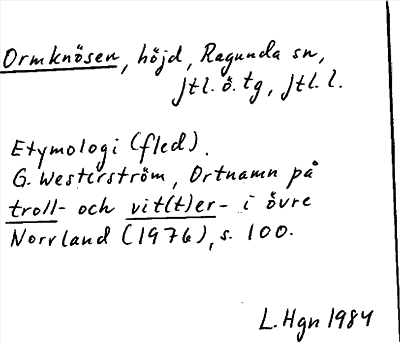 Ormknösen, höjd, Ragunda sn,
Jtl. ö. tg, Jtl. l.
Etymologi (fled).
G. Westerström, Ortnamn på
troll- och vit(t)er- i övre
Norrland (1976), s. 100.
L. Hgn 1984